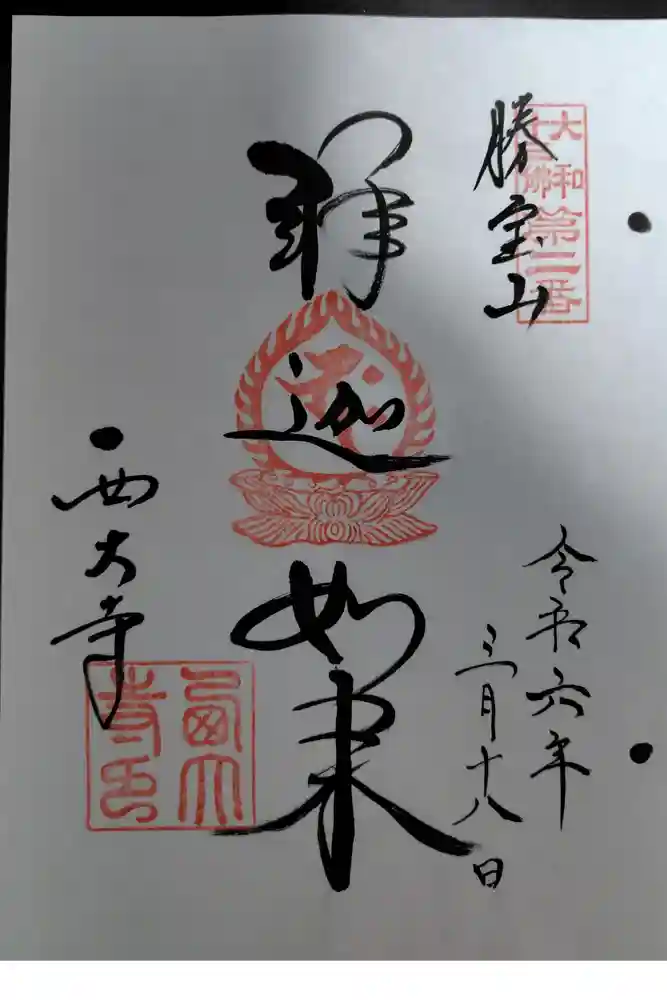 大和
十三佛
第二番
勝宝山
令和六年
三月十八日
釋迦如来
西大寺
西大
寺印